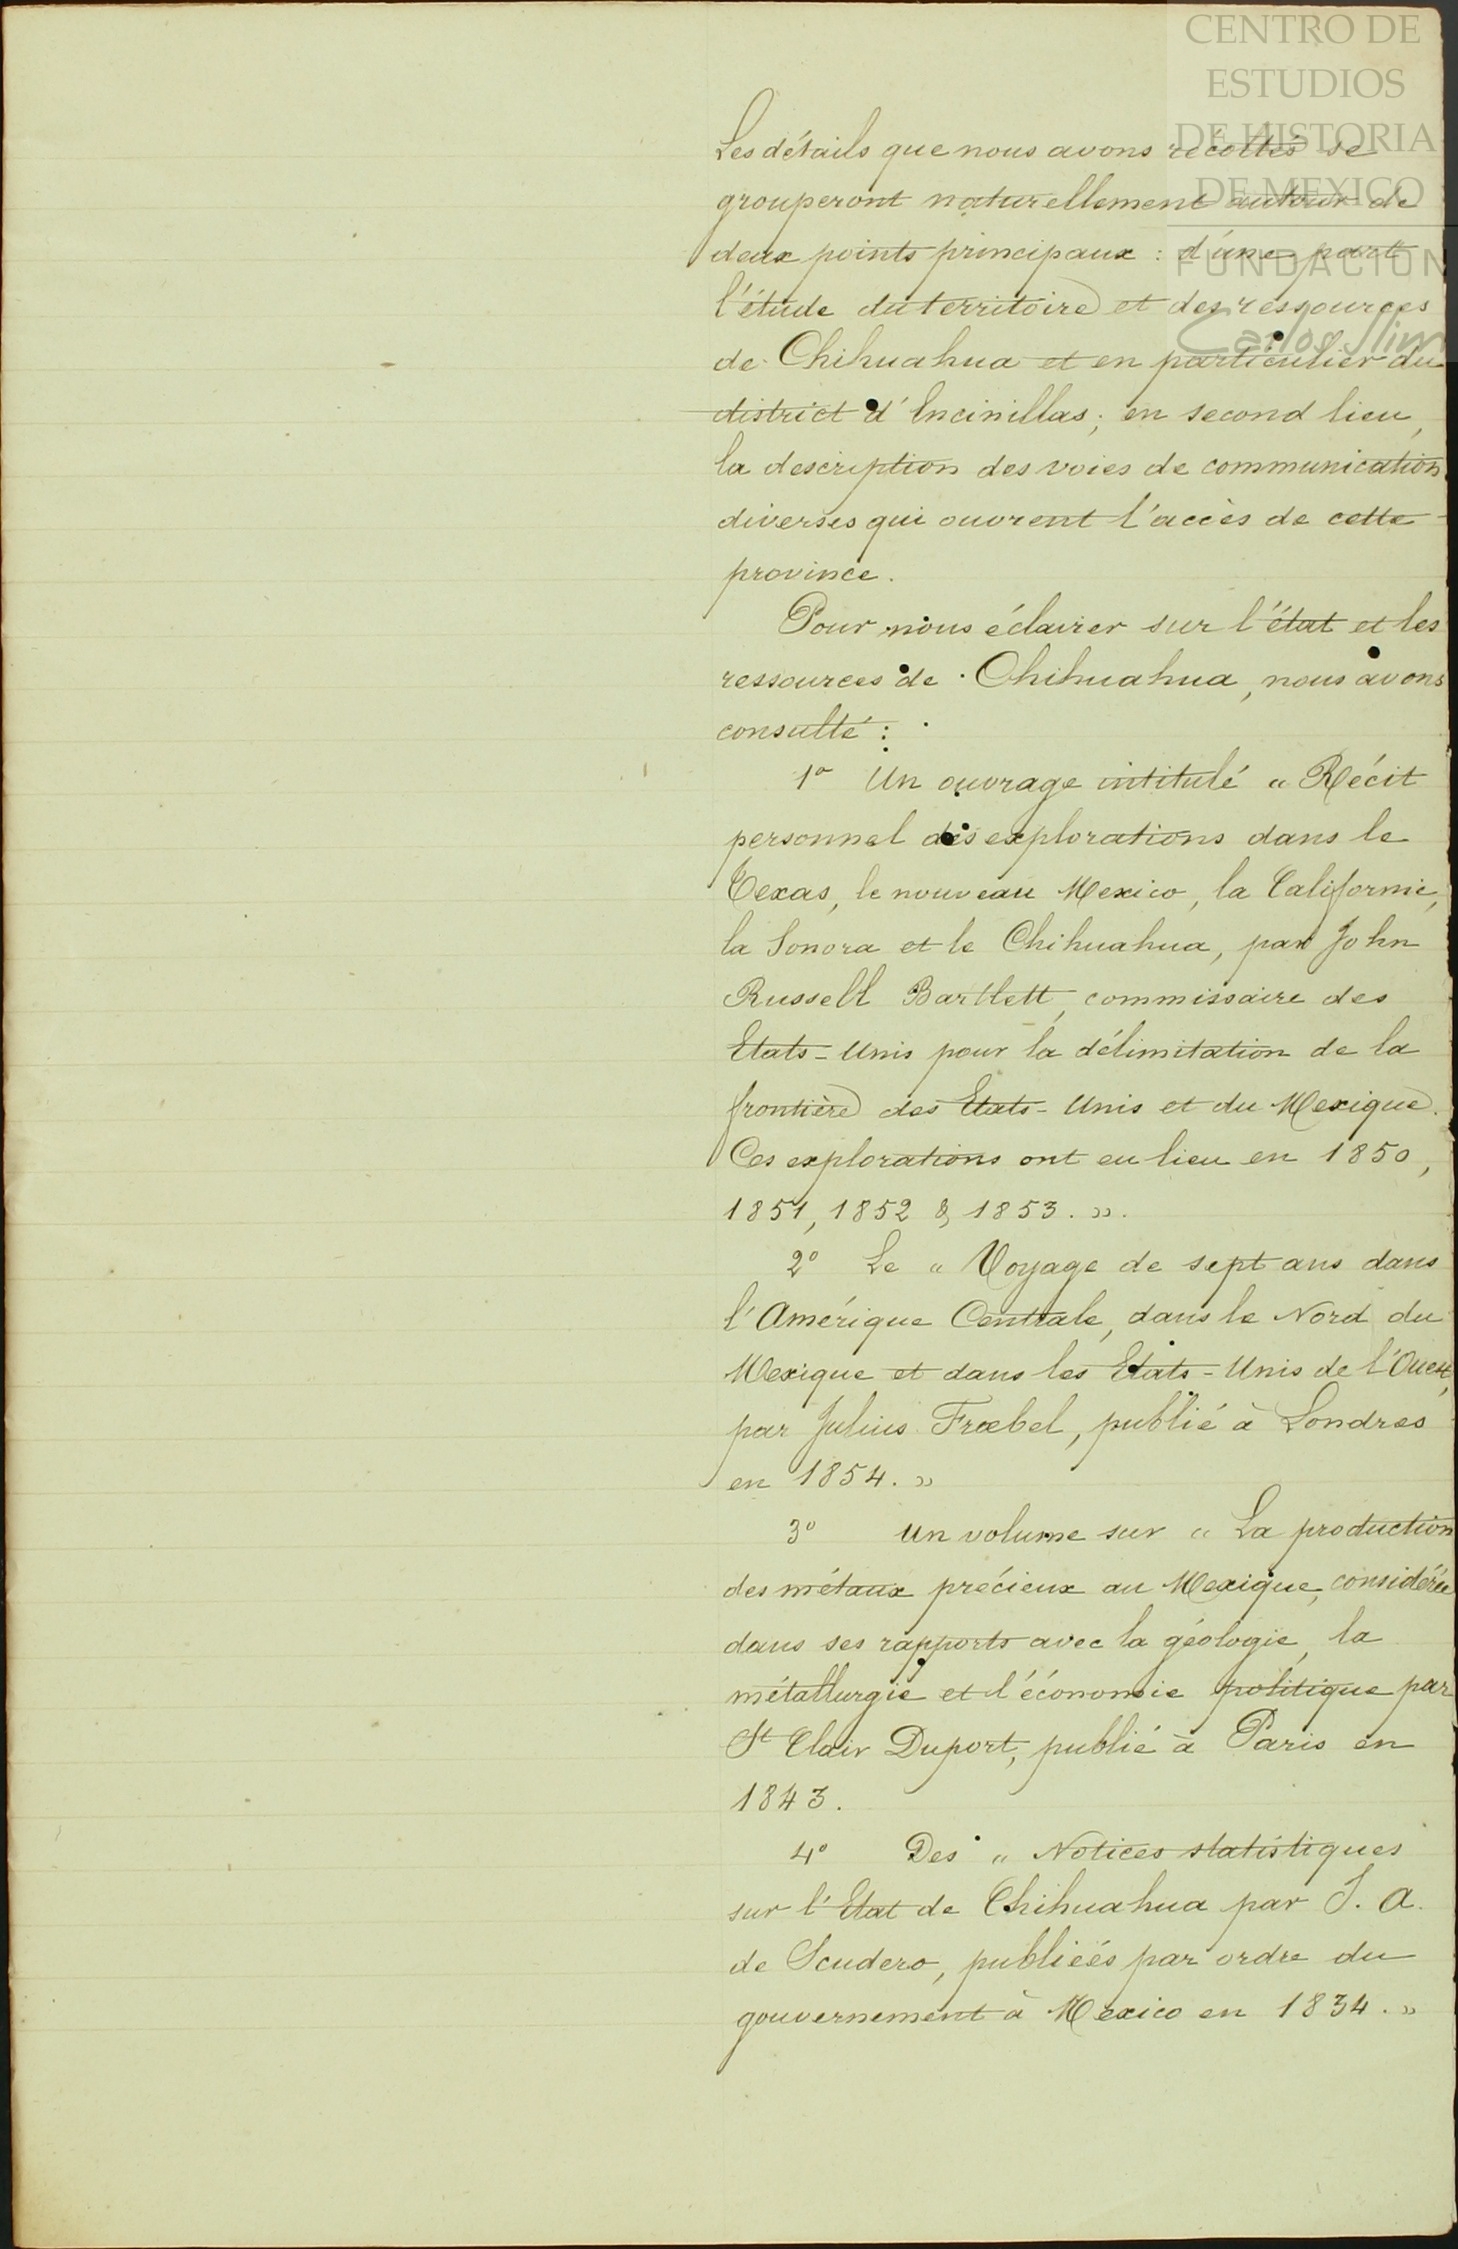 CENTRO DE
ESTUDIOS
DE HISTORIA
DE MEXICO
FUNDACIÓN
Carlos Slim
Les détails que nous avons récoltés se
grouperont naturellement autour de
deux points principaux : d'une part
l'étude du territoire et des ressources
de Chihuahua et en particulier du
district d'Encinillas ; en second lieu,
la description des voies de communication
diverses qui ouvrent l'accès de cette
province.
Pour nous éclairer sur l'état et les
ressources de Chihuahua, nous avons
consulté :
1º Un ouvrage intitulé « Récit
personnel des explorations dans le
Texas, le nouveau Mexico, la Californie,
la Sonora et le Chihuahua, par John
Russell Bartlett, commissaire des
Etats-Unis pour la délimitation de la
frontière des Etats-Unis et du Mexique.
Ces explorations ont eu lieu en 1850,
1851, 1852 & 1853. ».
2º Le « Voyage de sept ans dans
l'Amérique Centrale, dans le Nord du
Mexique et dans les Etats-Unis de l'Ouest,
par Julius Frœbel, publié à Londres
en 1854. »
3º un volume sur « La production
des métaux précieux au Mexique, considérée
dans ses rapports avec la géologie, la
métallurgie et l'économie politique par
St Clair Duport, publié à Paris en
1843.
4º Des « Notices statistiques
sur l'Etat de Chihuahua par J. A.
de Scudero, publiéés par ordre du
gouvernement à Mexico en 1834. »